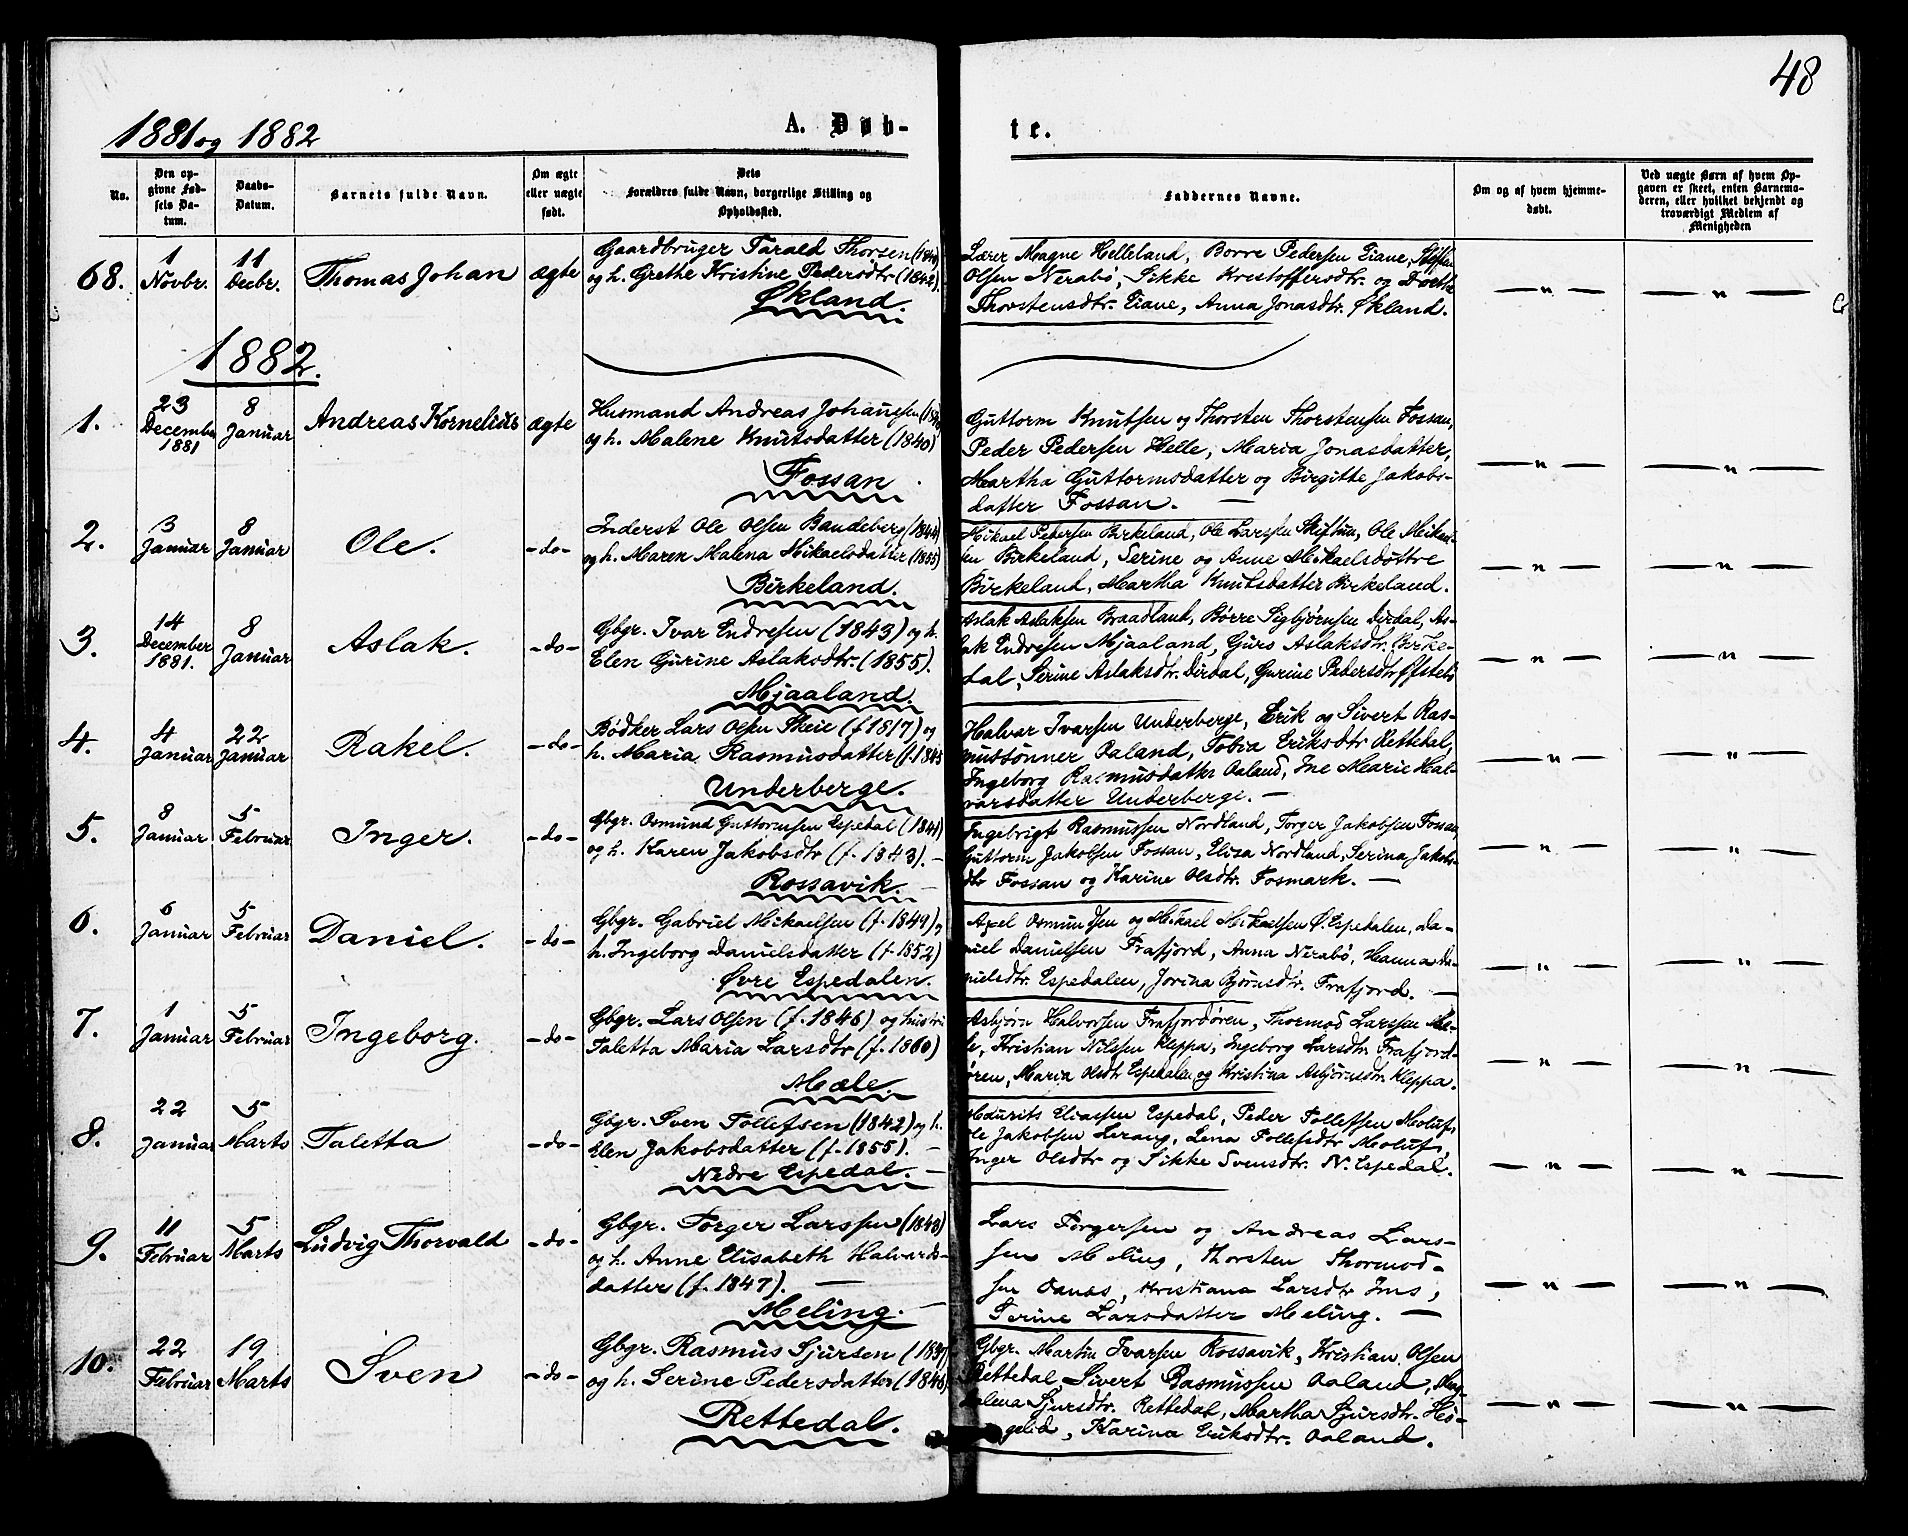 48
1881 og 1882
A. Døb-
te.
No.
Den op-
givne Fød-
sels Da-
tum.
Daabs-
Datum.
Barnets fulde Navn.
Om ægte
eller uægte
født.
Dets
Forældres fulde Navn, borgerlige Stilling og
Opholdssted.
Faddernes Navne.
Om og af hvem hjemme-
døbt.
Ved uægte Børn af hvem Op-
gaven er skeet, enten Barnemo-
deren, eller hvilket bekjendt og
troværdigt Medlem af
Menigheden
68.
1
Novbr.
11
Decbr.
Thomas Johan
ægte
Gaardbruger Tarald Thorsen
og h. Grethe Kristine Pedersdtr (1842).
Økland.
Lærer Magne Helleland, Borre Pedersen Eiane,
Olsen Nerabø, Sikke Kristoffersdtr. og
Thorstensdtr. Eiane, Anna Jonasdtr. Økland.
— " —
— " —
1882.
1.
23
December
1881
8
Januar
Andreas Kornelius
ægte
Husmand Andreas Johannesen
og h. Malene Knutsdatter (1840)
Fossan
Guttorm Knutsen og Thorsten Thorstensen Fossan,
Peder Pedersen Helle, Maria Jonasdatter,
Martha Guttormsdatter og Birgitte Jakobs-
datter Fossan. —
— " —
— " —
2.
3
Januar
8
Januar
Ole.
-do-
Inderst Ole Olsen Bandeberg (1844)
og h. Maren Malena Mikaelsdatter (1855)
Birkeland.
Mikael Pedersen Birkeland, Ole Larsen Skiftun, Ole Mikael-
sen Birkeland, Serine og Anne Mikaelsdøttre
Birkeland, Martha Knutsdatter Birkeland.
— " —
— " —
3.
14
December
1881.
8
Januar
Aslak.
-do-
Gbgr. Ivar Endresen (1843) og h.
Elen Gurine Aslaksdtr. (1855).
Mjaaland.
Aslak Aslaksen Braadland, Børre Sigbjørnsen Dirdal, As-
lak Endresen Mjaaland, Guro Aslaksdtr. Birke-
dal, Serine Aslaksdtr. Dirdal, Gurine Pedersdtr
— " —
— " —
4.
4
Januar
22
Januar
Rakel.
-do-
Bødker Lars Olsen Skeie (f 1817) og
h. Maria Rasmusdatter (f. 1845
Underberge.
Halvar Ivarsen Underberge, Erik og Sivert Ras-
mussønner Aaland, Tobia Eriksdtr Rettedal,
Ingeborg Rasmusdatter Aaland, Ine Marie Hal-
varsdatter Underberge. —
— " —
— " —
5.
8
Januar
5
Februar
Inger.
-do-
Gbgr. Osmund Guttormsen Espedal (1841)
og h. Karen Jakobsdtr (f. 1843). —
Rossavik. —
Ingebrigt Rasmussen Nordland, Torger Jakobsen Fossan,
Guttorm Jakobsen Fossan, Eliza Nordland, Serina Jakobs-
dtr Fossan og Karine Olsdtr. Fosmark. —
— " —
— " —
6.
6
Januar
5
Februar
Daniel.
-do-
Gbgr. Gabriel Mikaelsen (f. 1849) og
h. Ingeborg Danielsdatter (f. 1852)
Øvre Espedalen.
Axel Osmundsen og Mikael Mikaelsen Ø. Espedalen, Da-
niel Danielsen Frafjord, Anna Nerabø, Hanna Da-
nielsdtr. Espedalen, Jorina Bjørnsdtr. Frafjord. —
— " —
— " —
7.
1
Januar
5
Februar
Ingeborg.
-do-
Gbgr. Lars Olsen (f. 1846) og hustru
Taletta Maria Larsdtr (f. 1860)
Mæle.
Asbjørn Halvorsen Frafjordøren, Thormod Larsen Mæ-
le, Kristian Nilsen Kleppa, Ingeborg Larsdtr. Frafjord-
øren, Maria Olsdtr Espedalen og Kristina Asbjørnsdtr. Kleppa.
— " —
— " —
8.
22
Januar
5
Marts
Taletta
-do-
Gbgr. Sven Tollefsen (1842) og h.
Elen Jakobsdatter (f. 1855). —
Nedre Espedal. —
Maurits Eliassen Espedal, Peder Tollefsen Moluf,
Ole Jakobsen Lerang, Lena Tollefsdtr Moluf,
Inger Olsdtr og Sikke Svensdtr. N. Espedal.
— " —
— " —
9.
11
Februar
5
Marts
Ludvig Thorvald
-do-
Gbgr. Torger Larssen (1848)
og h. Anne Elisabeth Halvards-
datter (f. 1847). —
Meling. —
Lars Torgersen og Andreas Lars-
sen Meling, Thorsten Thormod-
sen Oanes, Kristiana Larsdtr Ims,
Serine Larsdatter Meling. —
— " —
— " —
10.
22
Februar
19
Marts
Sven
-do-
Gbgr. Rasmus Sjursen (1837)
og h. Serine Pedersdatter (1846)
Rettedal.
Gbgr. Martin Ivarsen Rossavik, Kristian Olsen
Rettedal, Sivert Rasmussen Aaland, Mag-
dalena Sjursdtr. Rettedal, Martha Sjursdtr. Hø-
gelid, Karina Eriksdtr. Aaland.
— " —
— " —